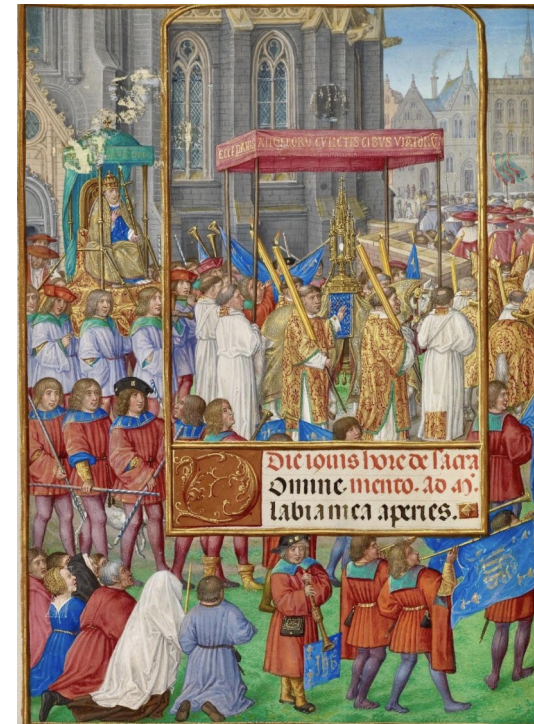 ECCE PANIS ANGELORŪ CVNCTIS CIBVS VIATORŪ
Die iouis hore de sacra
Domine. mento. Ad
labia mea aperies.